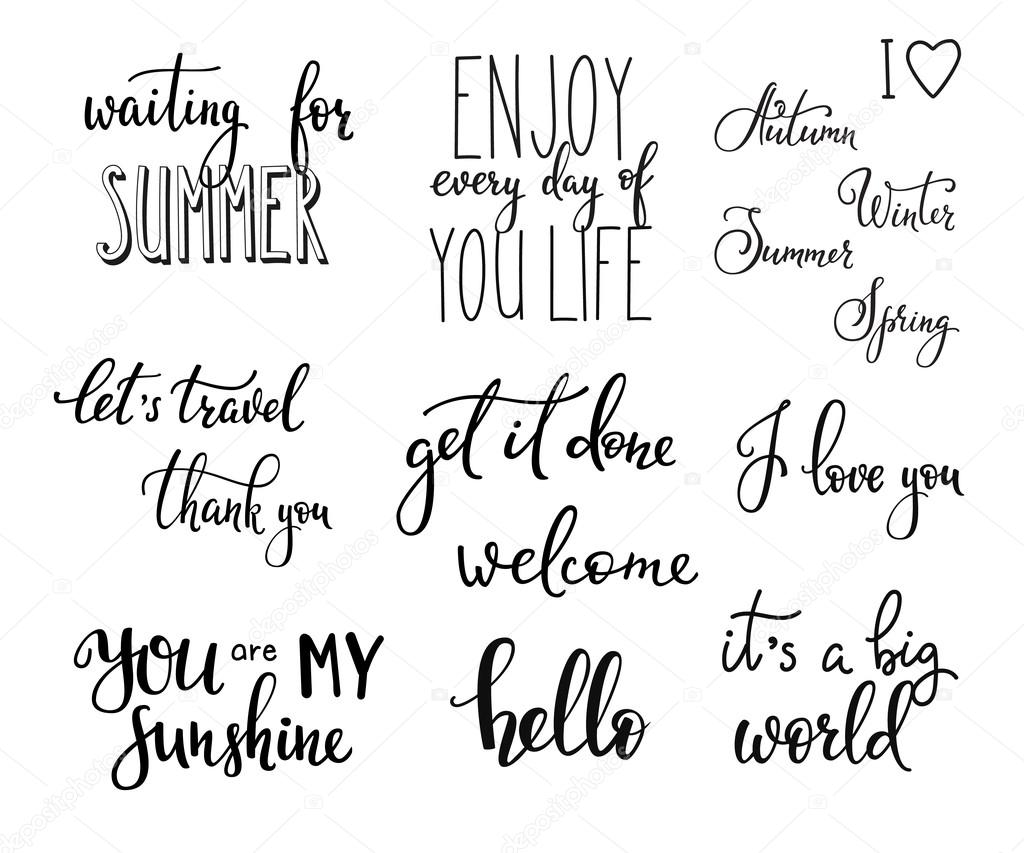 waiting for
SUMMER
ENJOY
every day of
YOU LIFE
I ♡
Autumn
Winter
Summer
Spring
let's travel
thank you
get it done
welcome
I love you
You are MY
sunshine
hello
it's a big
world
depositphotos